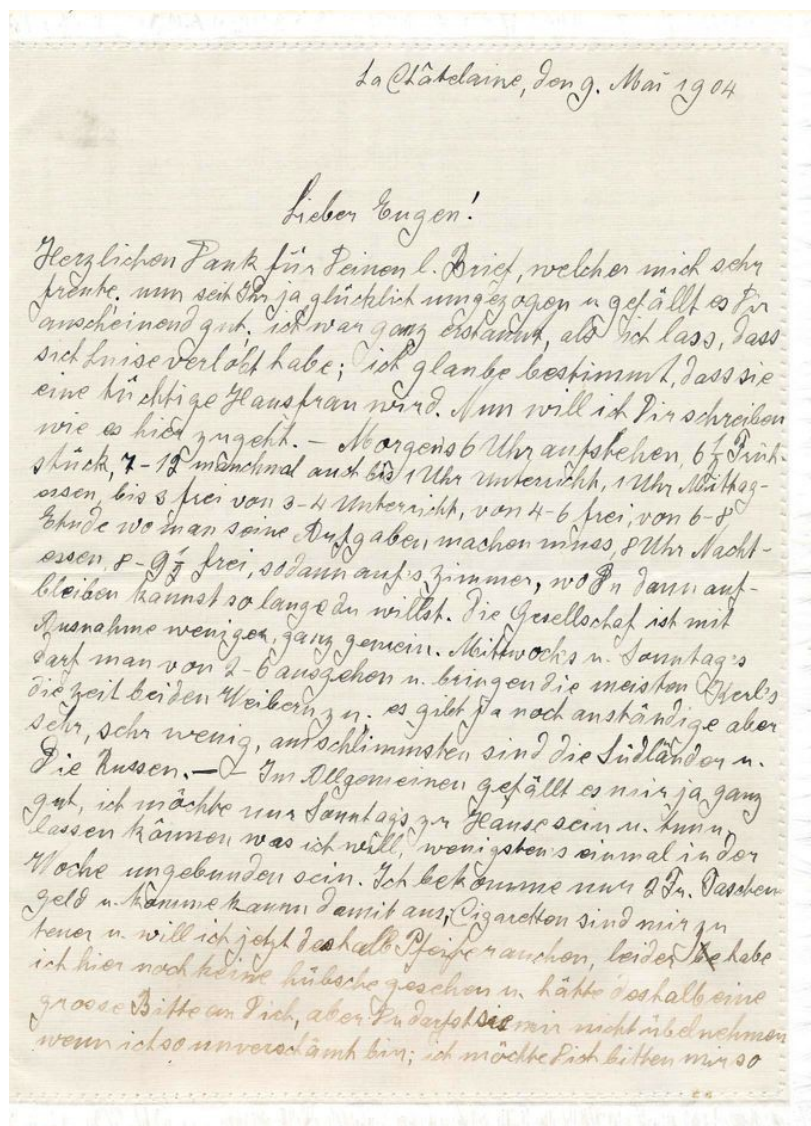 La Châtelaine, den 9. Mai 1904
Lieber Eugen!
Herzlichen Dank für Deinen l. Brief, welcher mich sehr
freute. nun seit Ihr ja glücklich umgezogen u gefällt es Dir
anscheinend gut. ich war ganz erstaunt, als ich lass, dass
sich Luise verlobt habe; ich glaube bestimmt, dass sie
eine tüchtige Hausfrau wird. Nun will ich Dir schreiben
wie es hier zugeht. — Morgens 6 Uhr aufstehen, 6½ Früh-
stück, 7-12 manchmal auch bis 1 Uhr Unterricht, 1 Uhr Mittag-
essen, bis 3 frei von 3-4 Unterricht, von 4-6 frei, von 6-8
Etude wo man seine Aufgaben machen muss, 8 Uhr Nacht-
essen, 8-9½ frei, sodann auf's Zimmer, wo Du dann auf-
bleiben kannst so lange du willst. Die Gesellschaf ist mit
Ausnahme weniger, ganz gemein. Mittwochs u. Sonntag's
darf man von 2-6 ausgehen u. bringen die meisten Kerl's
die Zeit bei den Weibern zu. es gibt ja noch anständige aber
sehr, sehr wenig, am schlimmsten sind die Südländer u.
die Russen. — — Im Allgemeinen gefällt es mir ja ganz
gut, ich möchte nur Sonntag's zu Hause sein u. tun u.
lassen können was ich will, wenigstens einmal in der
Woche ungebunden sein. Ich bekomme nur 2 Fr. Taschen
geld u. komme kaum damit aus; Cigaretten sind mir zu
teuer u. will ich jetzt deshalb Pfeife rauchen, leider habe
ich hier noch keine hübsche gesehen u. hätte deshalb eine
grosse Bitte an Dich, aber Du darfst sie mir nicht übel nehmen
wenn ich so unverschämt bin; ich möchte Dich bitten mir so